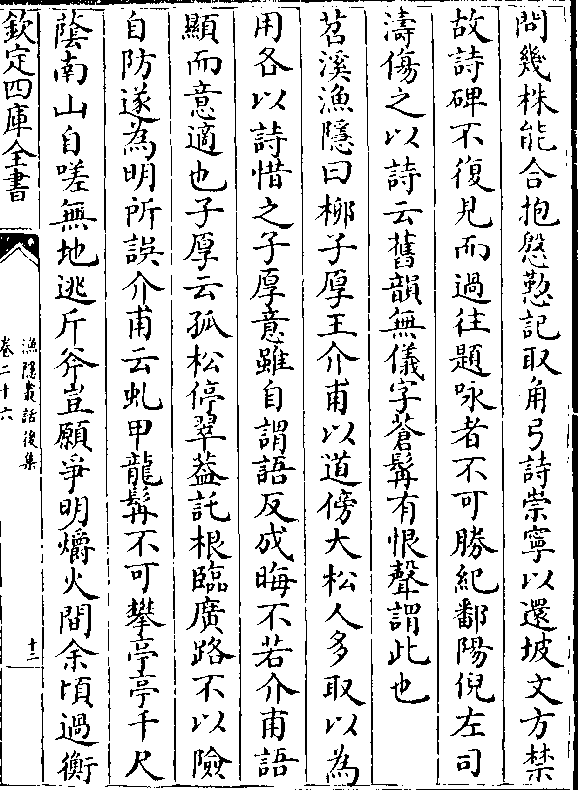 問幾株能合抱慇懃記取角弓詩崇寧以還坡文方禁
故詩碑不復見而過往題咏者不可勝紀鄱陽倪左司
濤傷之以詩云舊韻無儀字蒼髯有恨聲謂此也
苕溪漁隱曰桞子厚王介甫以道傍大松人多取以為
用各以詩惜之子厚意雖自謂語反成晦不若介甫語
顯而意適也子厚云孤松停翠葢託根臨廣路不以險
自防遂為明所誤介甫云虬甲龍髯不可攀亭亭千尺
蔭南山自嗟無地逃斤斧豈願爭明爝火間余頃過衡
欽定四庫全書
漁隱叢話後集
卷二十六
十二